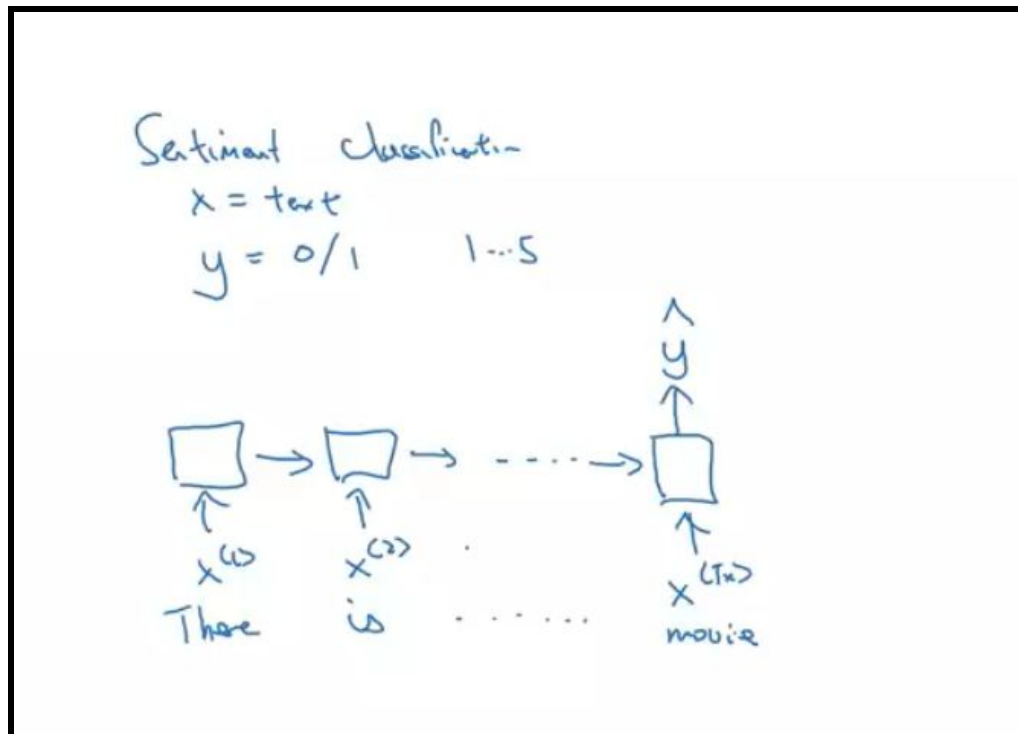 Sentiment classification
x = text
y = 0/1 1...5
ŷ
x<1> x<2> x<Tx>
There is ...... movie